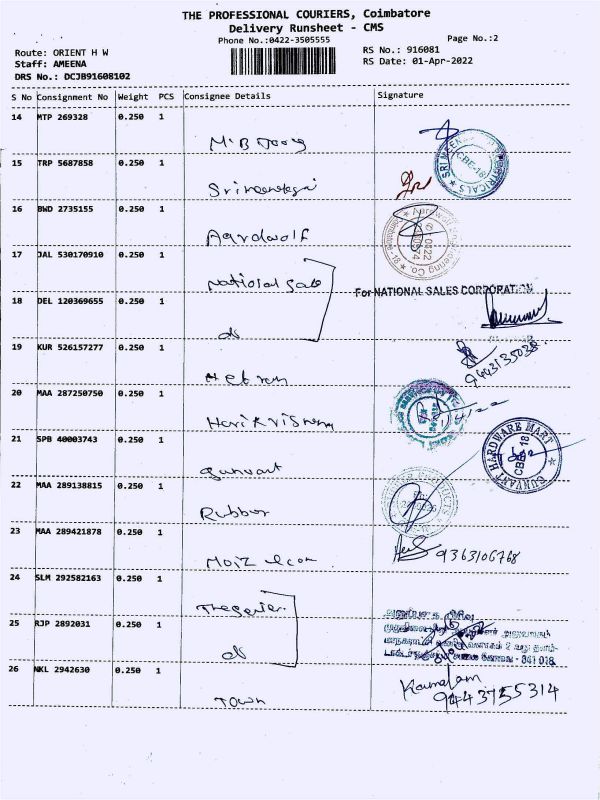 THE PROFESSIONAL COURIERS, Coimbatore
Delivery Runsheet - CMS
Phone No.:0422-3505555
Page No.:2
Route: ORIENT H W
RS No.: 916081
Staff: AMEENA
RS Date: 01-Apr-2022
DRS No.: DCJB91608102
S No Consignment No Weight PCS Consignee Details Signature
14 MTP 269328 0.250 1
15 TRP 5687858 0.250 1
16 BWD 2735155 0.250 1
Aardwolf
17 JAL 530170910 0.250 1
National Sale
For NATIONAL SALES CORPORATION
18 DEL 120369655 0.250 1
do
19 KUR 526157277 0.250 1
9443135038
20 MAA 287250750 0.250 1
Harikrishna
21 SPB 40003743 0.250 1
GUNVANT HARDWARE MART
CBE-18
Gunvant
22 MAA 289138815 0.250 1
Rubber
23 MAA 289421878 0.250 1
9363106768
24 SLM 292582163 0.250 1
25 RJP 2892031 0.250 1
do
26 NKL 2942630 0.250 1
Kamalam
9443755314
Town